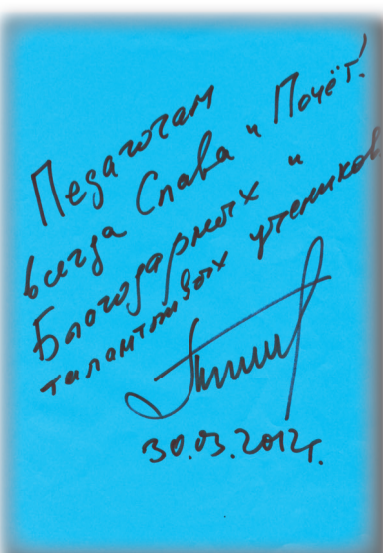 Педагогам
всегда Слава и Почёт!
Благодарных и
талантливых учеников
30.03.2012г.